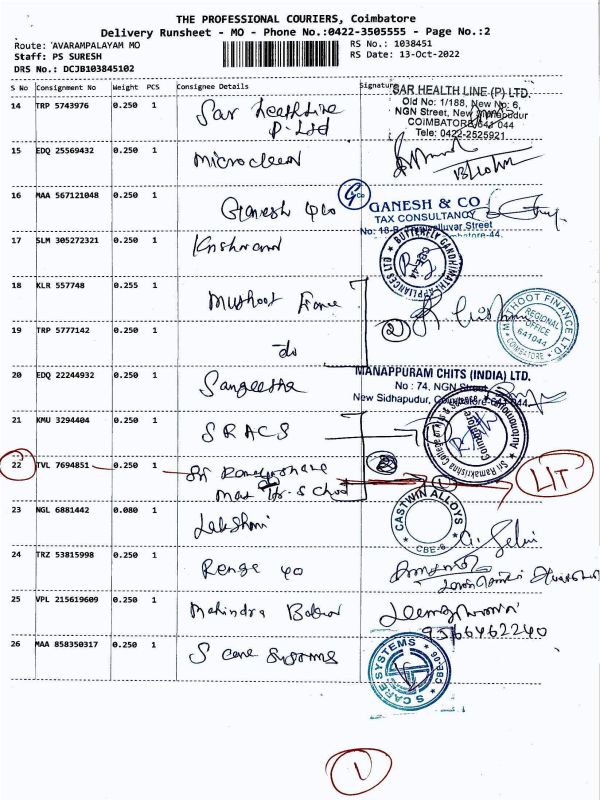 THE PROFESSIONAL COURIERS, Coimbatore
Delivery Runsheet - MO - Phone No.:0422-3505555 - Page No.:2
Route: 'AVARAMPALAYAM MO
RS No.: 1038451
Staff: PS SURESH
RS Date: 13-Oct-2022
DRS No.: DCJB103845102
S No Consignment No Weight PCS Consignee Details Signature
SAR HEALTH LINE (P) LTD.
Old No: 1/188, New No: 6,
NGN Street, New Sidhapudur
COIMBATORE-641 044
Tele: 0422-2525921
14 TRP 5743976 0.250 1 Sar Healthline
P. Ltd
15 EDQ 25569432 0.250 1
16 MAA 567121048 0.250 1 Ganesh & co
GANESH & CO
TAX CONSULTANCY
No: 18-B, Street
Coimbatore-44.
17 SLM 305272321 0.250 1
BUTTERFLY GANDHIMATHI APPLIANCES LTD
CBE-44
18 KLR 557748 0.255 1 Muthoot
2
MUTHOOT FINANCE LTD.
REGIONAL
OFFICE
641044
COIMBATORE
19 TRP 5777142 0.250 1 do
20 EDQ 22244932 0.250 1 Sangeetha
MANAPPURAM CHITS (INDIA) LTD.
No : 74, NGN Street
New Sidhapudur, Coimbatore-641 044.
21 KMU 3294404 0.250 1 SRACS
Sri Ramakrishna College of Arts & Science
Autonomous
Coimbatore
22 TVL 7694851 0.250 1 Sri
Mat Hr. S
2
1
LIT
23 NGL 6881442 0.080 1 Lakshmi
CASTWIN ALLOYS
CBE-6
G. Selvi
24 TRZ 53815998 0.250 1 Renga
25 VPL 215619609 0.250 1 Mahindra
9566462240
26 MAA 858350317 0.250 1 S Care Systems
S CARE SYSTEMS
CBE-06
1